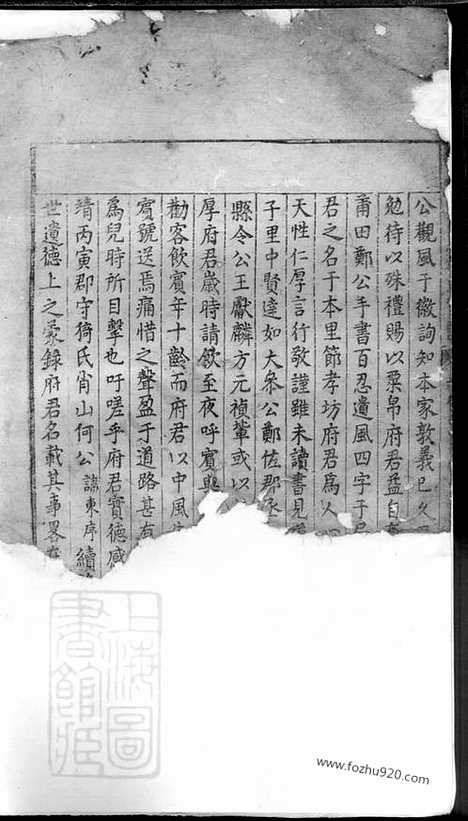 公觀風于徽詢知本家敦義已久
勉待以殊禮賜以粟帛府君益自
莆田鄭公手書百忍遺風四字于
君之名于本里節孝坊府君爲人
天性仁厚言行敬謹雖未讀書見
子里中賢達如大叅公鄭佐郡丞
縣令公王獻麟方元禎輩或以
厚府君嵗時請飲至夜呼賓與
勸客飲賓年十齡而府君以中風
賓號送焉痛惜之聲盈于道路甚有
爲兒時所目擊也吁嗟乎府君實德感
靖丙寅郡守猗氏肖山何公諱東序續
世遺德上之彙錄府君名載其事畧在
上海圖書館藏
www.fozhu920.com